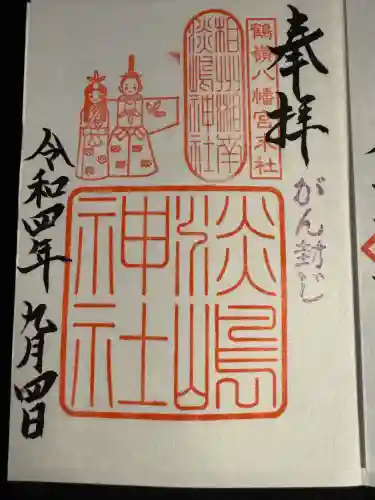 奉拝
鶴嶺八幡宮末社
相州湘南
淡嶋神社
がん封じ
淡嶋
神社
令和四年 九月四日